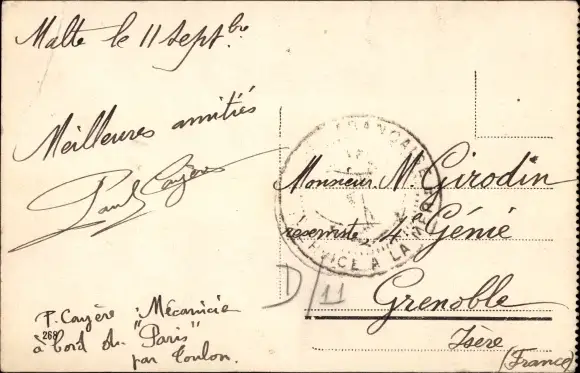 Malte le 11 Septbre
Meilleures amitiés
Paul Cayère
P. Cayère Mécanicien
268
à bord du "Paris"
par Toulon.
FRANÇAISE
SERVICE A LA MER
Monsieur M. Girodin
reserviste 4e Génie
Grenoble
Isère
(France)
D/11